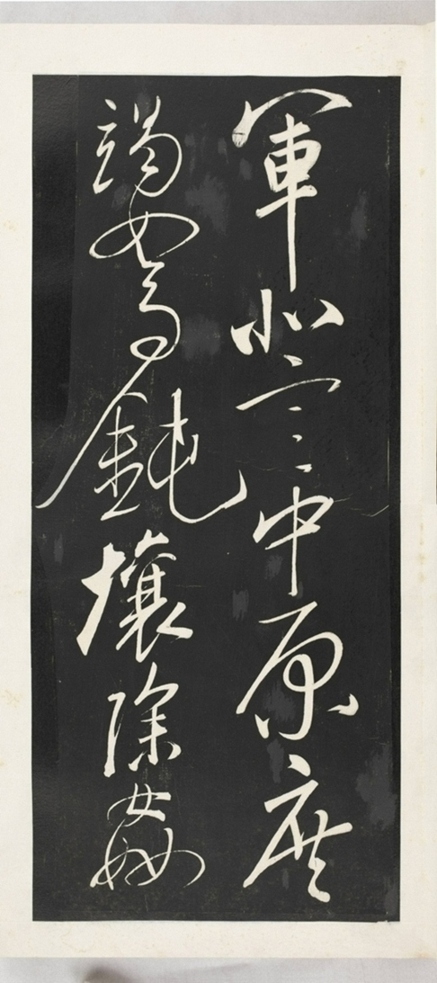 軍北定中原庶
竭駑鈍攘除姦